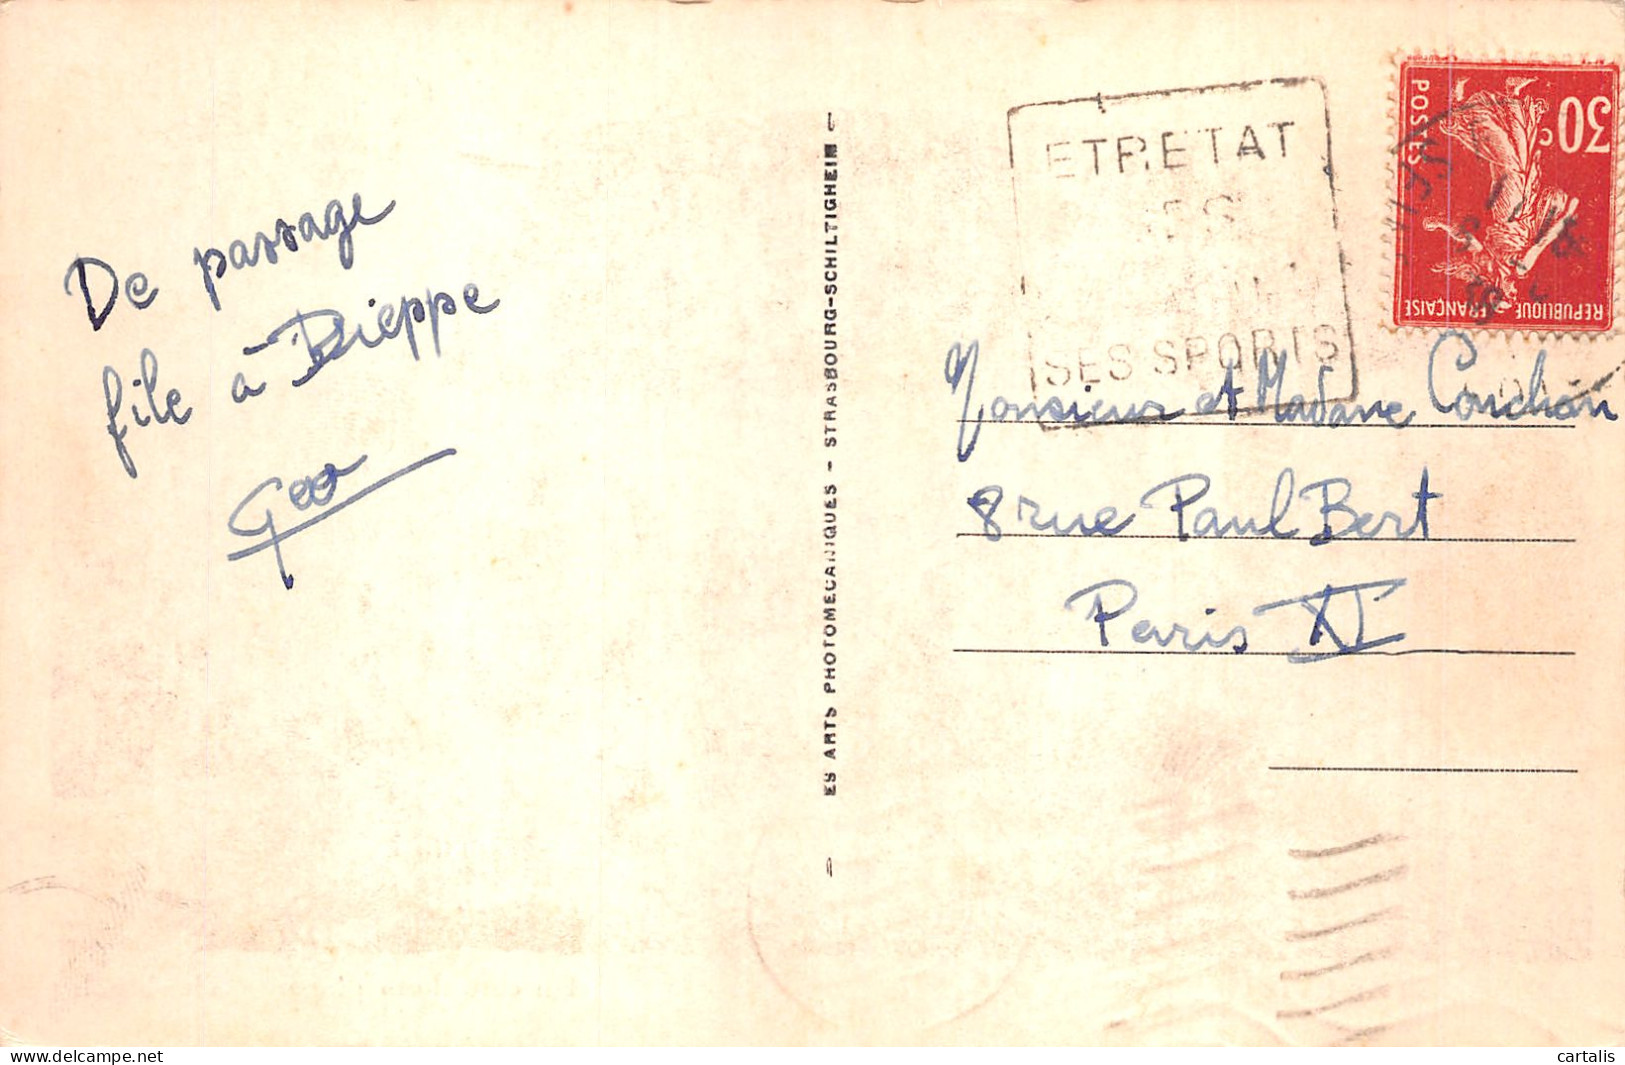 De passage
file à Dieppe
Geo
ES ARTS PHOTOMECANIQUES - STRASBOURG-SCHILTIGHEIM
ETRETAT
SES SPORTS
30c
POSTES
REPUBLIQUE FRANÇAISE
Monsieur et Madame Conchon
8 rue Paul Bert
Paris XI
delcampe.net
cartalis